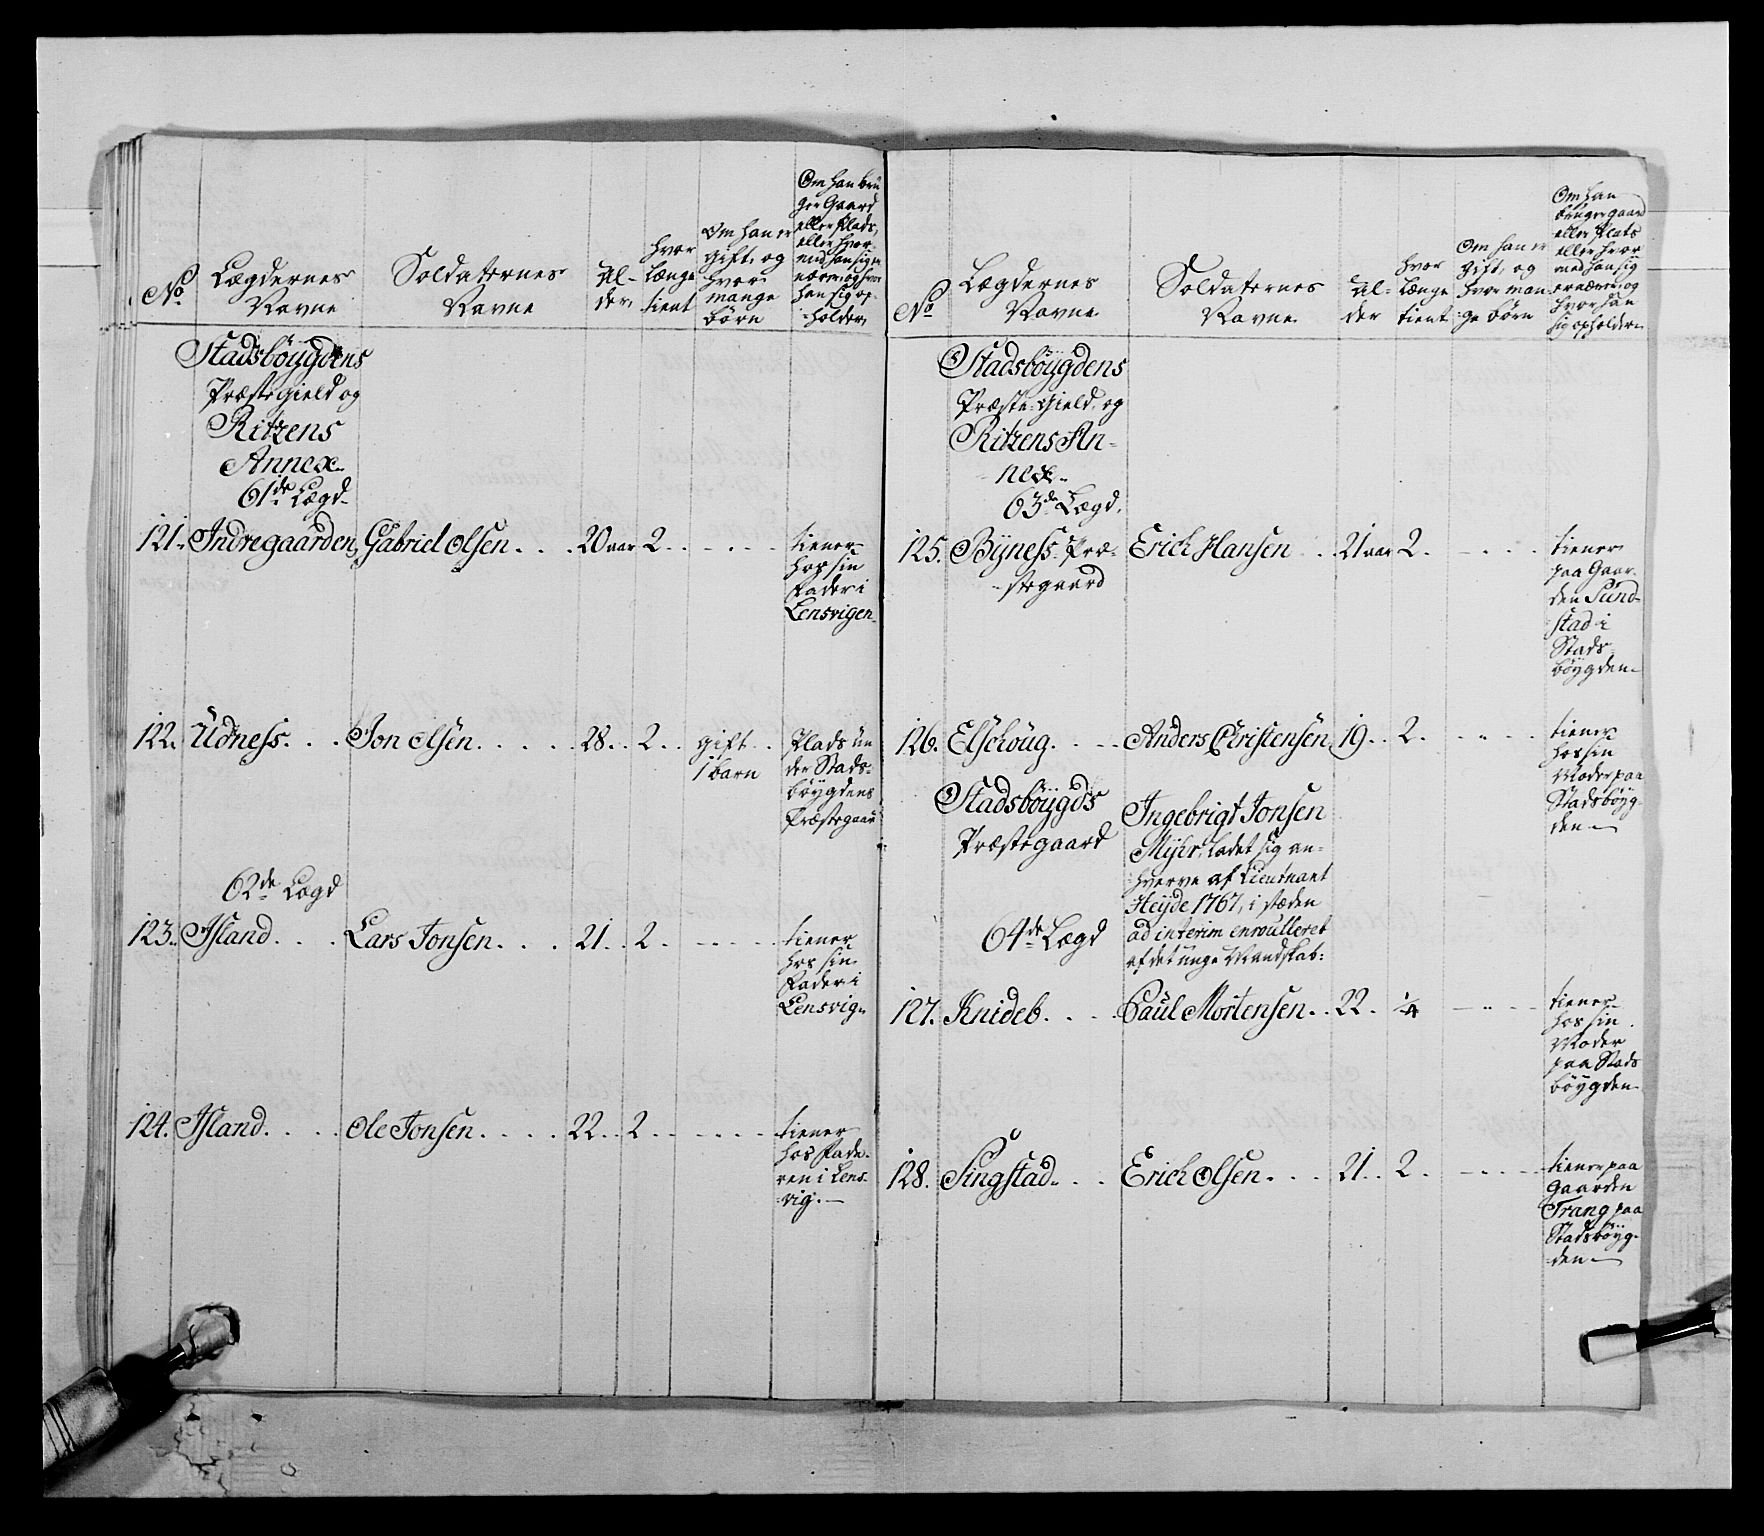 No
Lægdernes
Navne
Soldaternes
Navne
Al-
der
hvor
længe
tient
Om han er
gift, og
hvor
mange
börn
Om han bru
ger Gaard
eller Plads,
eller hvor-
med han sig er
nærer, og hvor
han sig op-
holder
Stadsböygdens
Præstegield og
Ritzens
Annex
61de Lægd
121. Indregaarden Gabriel Olsen 20 aar 2
tiener
hos sin
Fader i
Lensvigen
122. Udness Jon Olsen 28 2 gift
1 barn
Plads un
der Stads-
böygdens
Præstegaar
62de Lægd
123. Island Lars Jonsen 21 2
tiener
hos sin
Fader i
Lensvig
124. Island Ole Jonsen 22 2
tiener
hos Fade-
ren i Lens-
vig.
No
Lægdernes
Navne
Soldaternes
Navne
Al-
der
hvor
længe
tient
Om han er
gift, og
hvor man-
ge börn
Om han
bruger gaard
eller Plats
eller hvor
med han sig
ernærer, og
hvor han
sig opholder
Stadsböygdens
Præste-Gield, og
Ritzens An-
nex
63de Lægd.
125. Byness Præ-
stegaard
Erich Hansen 21 aar 2
tiener
paa Gaar-
den Sund-
stad i
Stads-
böygden
126. Elschoug Anders Christensen 19 2
tiener
hos sin
Moder paa
Stadsböyg-
den
Stadsböygds
Præstegaard
Ingebrigt Jonsen
Myhr, ladet sig an-
hverve af Lieutnant
Heyde 1767, i stæden
ad interim enroulleret
af det unge Mandskab:
64de Lægd
127. Knideb Paul Mortensen 22 1/4
tiener
hos sin
Moder
paa Stads
böygden
128. Singstad Erich Olsen 21 2
tiener paa
Gaarden
Trang paa
Stadsböyg-
den